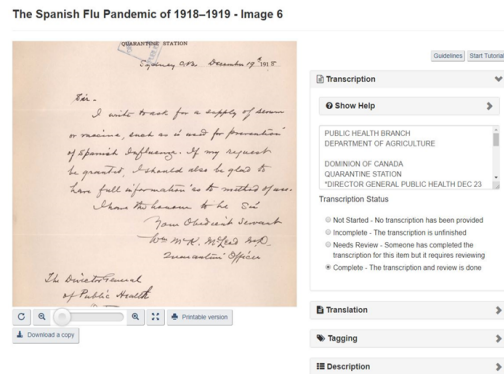 The Spanish Flu Pandemic of 1918–1919 - Image 6
Guidelines
Start Tutorial
QUARANTINE STATION
Sydney C.B. December 19th 1918
Sir.
I write to ask for a supply of serum
or vaccine, such as is used for prevention
of Spanish Influenza. If my request
be granted, I should also be glad to
have full information as to method of use.
I have the honour to be Sir
Your Obedient Servant
Wm McK. McLeod M.D.
Quarantine Officer
The Director General
of Public Health
Printable version
Download a copy
Transcription
Show Help
PUBLIC HEALTH BRANCH
DEPARTMENT OF AGRICULTURE
DOMINION OF CANADA
QUARANTINE STATION
*DIRECTOR GENERAL PUBLIC HEALTH DEC 23
Transcription Status
Not Started - No transcription has been provided
Incomplete - The transcription is unfinished
Needs Review - Someone has completed the
transcription for this item but it requires reviewing
Complete - The transcription and review is done
Translation
Tagging
Description